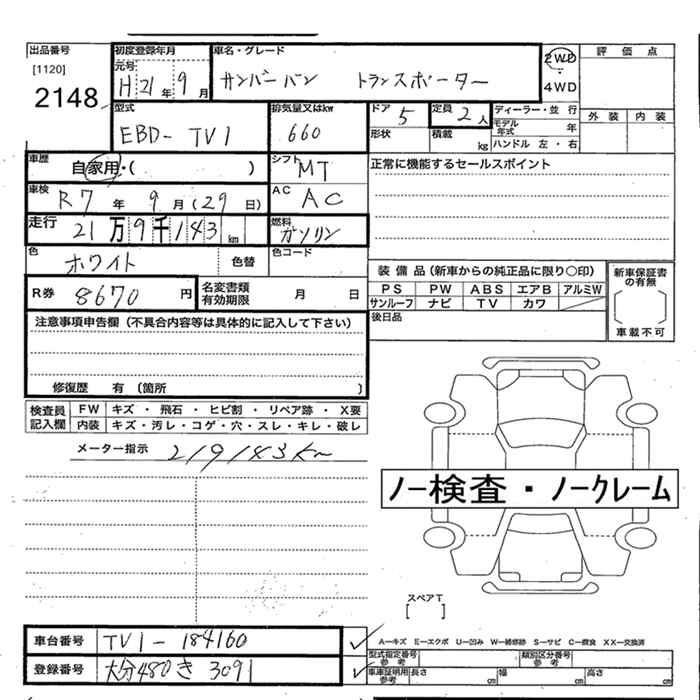 出品番号 初度登録年月 車名・グレード 2WD 評価点
[1120] 元号 H21年 9月 サンバーバン トランスポーター 4WD
2148 型式 排気量又はkw ドア 5 定員 2人 ディーラー・並行 外装 内装
EBD-TV1 660 形状 積載 kg モデル年式 年
ハンドル 左・右
車歴 自家用・( ) シフト MT 正常に機能するセールスポイント
車検 R7年 9月(29日) AC AC
走行 21万9千143km 燃料 ガソリン
色 ホワイト 色替 色コード
装備品(新車からの純正品に限り○印) 新車保証書の有無
R券 8670円 名変書類有効期限 月 日 PS PW ABS エアB アルミW
サンルーフ ナビ TV カワ
注意事項申告欄(不具合内容等は具体的に記入して下さい) 後日品 車載不可
修復歴 有(箇所 )
検査員記入欄 FW キズ・飛石・ヒビ割・リペア跡・X要
内装 キズ・汚レ・コゲ・穴・スレ・キレ・破レ
メーター指示 219143km
ノー検査・ノークレーム
スペアT
[ ]
A―キズ E―エクボ U―凹み W―補修跡 S―サビ C―腐食 XX―交換済
車台番号 TV1-184160 型式指定番号 参考 類別区分番号 参考
登録番号 大分480き3091 車庫証明用 参考 長さ cm 幅 cm 高さ cm